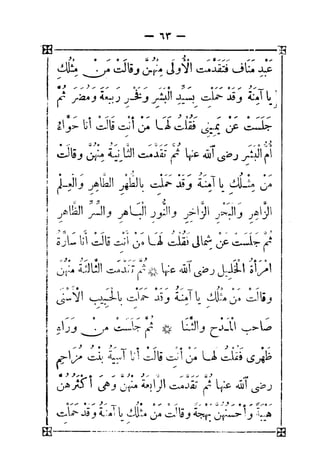 — ٦٣ —
عَبْدِ مَنَافٍ فَتَقَدَّمَتِ الْأُولَى مِنْهُنَّ وَقَالَتْ مَنْ مِثْلُكِ
يَا آمِنَةُ وَقَدْ حَمَلْتِ بِسَيِّدِ الْبَشَرِ وَفَخْرِ رَبِيعَةَ وَمُضَرَ ثُمَّ
جَلَسَتْ عَنْ يَمِينِي فَقُلْتُ لَهَا مَنْ أَنْتِ قَالَتْ أَنَا حَوَّاءُ
أُمُّ الْبَشَرِ رضى الله عنها ثُمَّ تَقَدَّمَتِ الثَّانِيَةُ مِنْهُنَّ وَقَالَتْ
مَنْ مِثْلُكِ يَا آمِنَةُ وَقَدْ حَمَلْتِ بِالطُّهْرِ الطَّاهِرِ وَالْعِلْمِ
الزَّاهِرِ وَالْبَحْرِ الزَّاخِرِ وَالنُّورِ الْبَاهِرِ وَالسِّرِّ الظَّاهِرِ
ثُمَّ جَلَسَتْ عَنْ شِمَالِي فَقُلْتُ لَهَا مَنْ أَنْتِ قَالَتْ أَنَا سَارَةُ
امْرَأَةُ الْخَلِيلِ رضى الله عنها * ثُمَّ تَقَدَّمَتِ الثَّالِثَةُ مِنْهُنَّ
وَقَالَتْ مَنْ مِثْلُكِ يَا آمِنَةُ وَقَدْ حَمَلْتِ بِالْحَبِيبِ الْأَسْنَى
صَاحِبِ الْمَدْحِ وَالثَّنَا * ثُمَّ جَلَسَتْ مِنْ وَرَاءِ
ظَهْرِى فَقُلْتُ لَهَا مَنْ أَنْتِ قَالَتْ أَنَا آسِيَةُ بِنْتُ مُزَاحِمٍ
رضى الله عنها ثُمَّ تَقَدَّمَتِ الرَّابِعَةُ مِنْهُنَّ وَهِىَ أَكْثَرُهُنَّ
هَيْبَةً وَأَحْسَنُهُنَّ بَهْجَةً وَقَالَتْ مَنْ مِثْلُكِ يَا آمِنَةُ وَقَدْ حَمَلْتِ